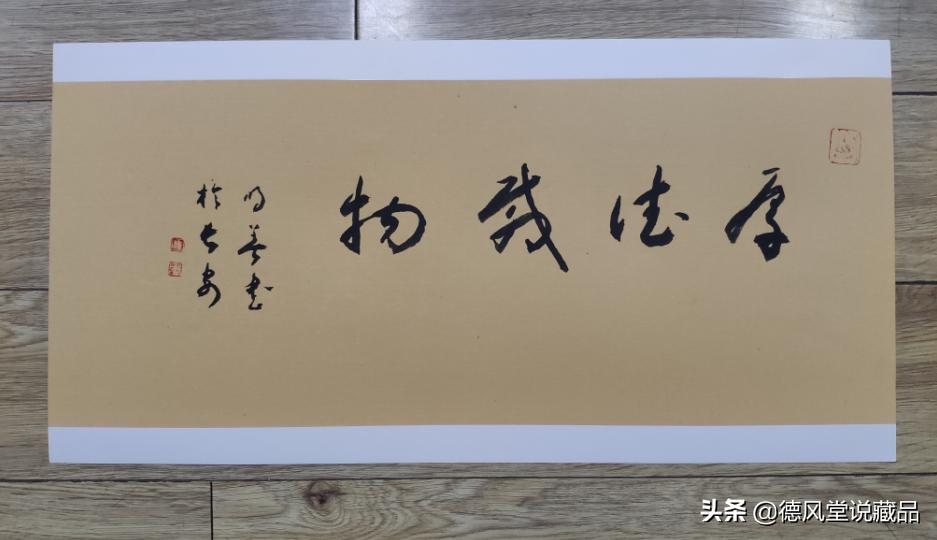 厚德载物
明善书
于长安
头条 @德风堂说藏品